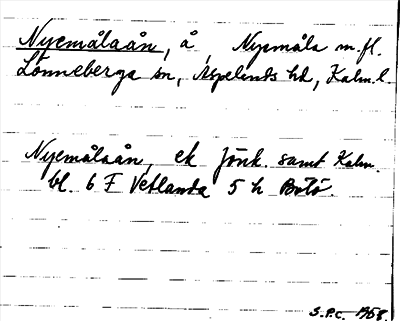 Nyemålaån, å, Nyemåla m.fl.
Lönneberga sn, Aspelands hd, Kalm.l.
Nyemålaån, ek Jönk. samt Kalm.
bl. 6 F Vetlanda 5 h Botö.
S.P.C. 1958.